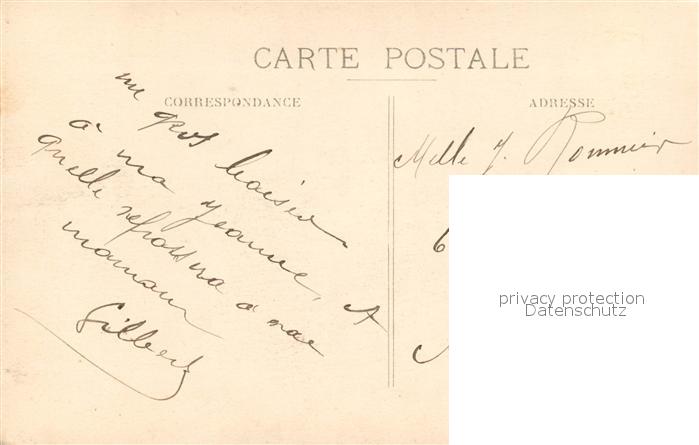 CARTE POSTALE
CORRESPONDANCE
un gros baiser
à ma Jeanne, et
quelle repassera à ma
maman
Gilbert
ADRESSE
Melle J. Pommier
6
privacy protection
Datenschutz